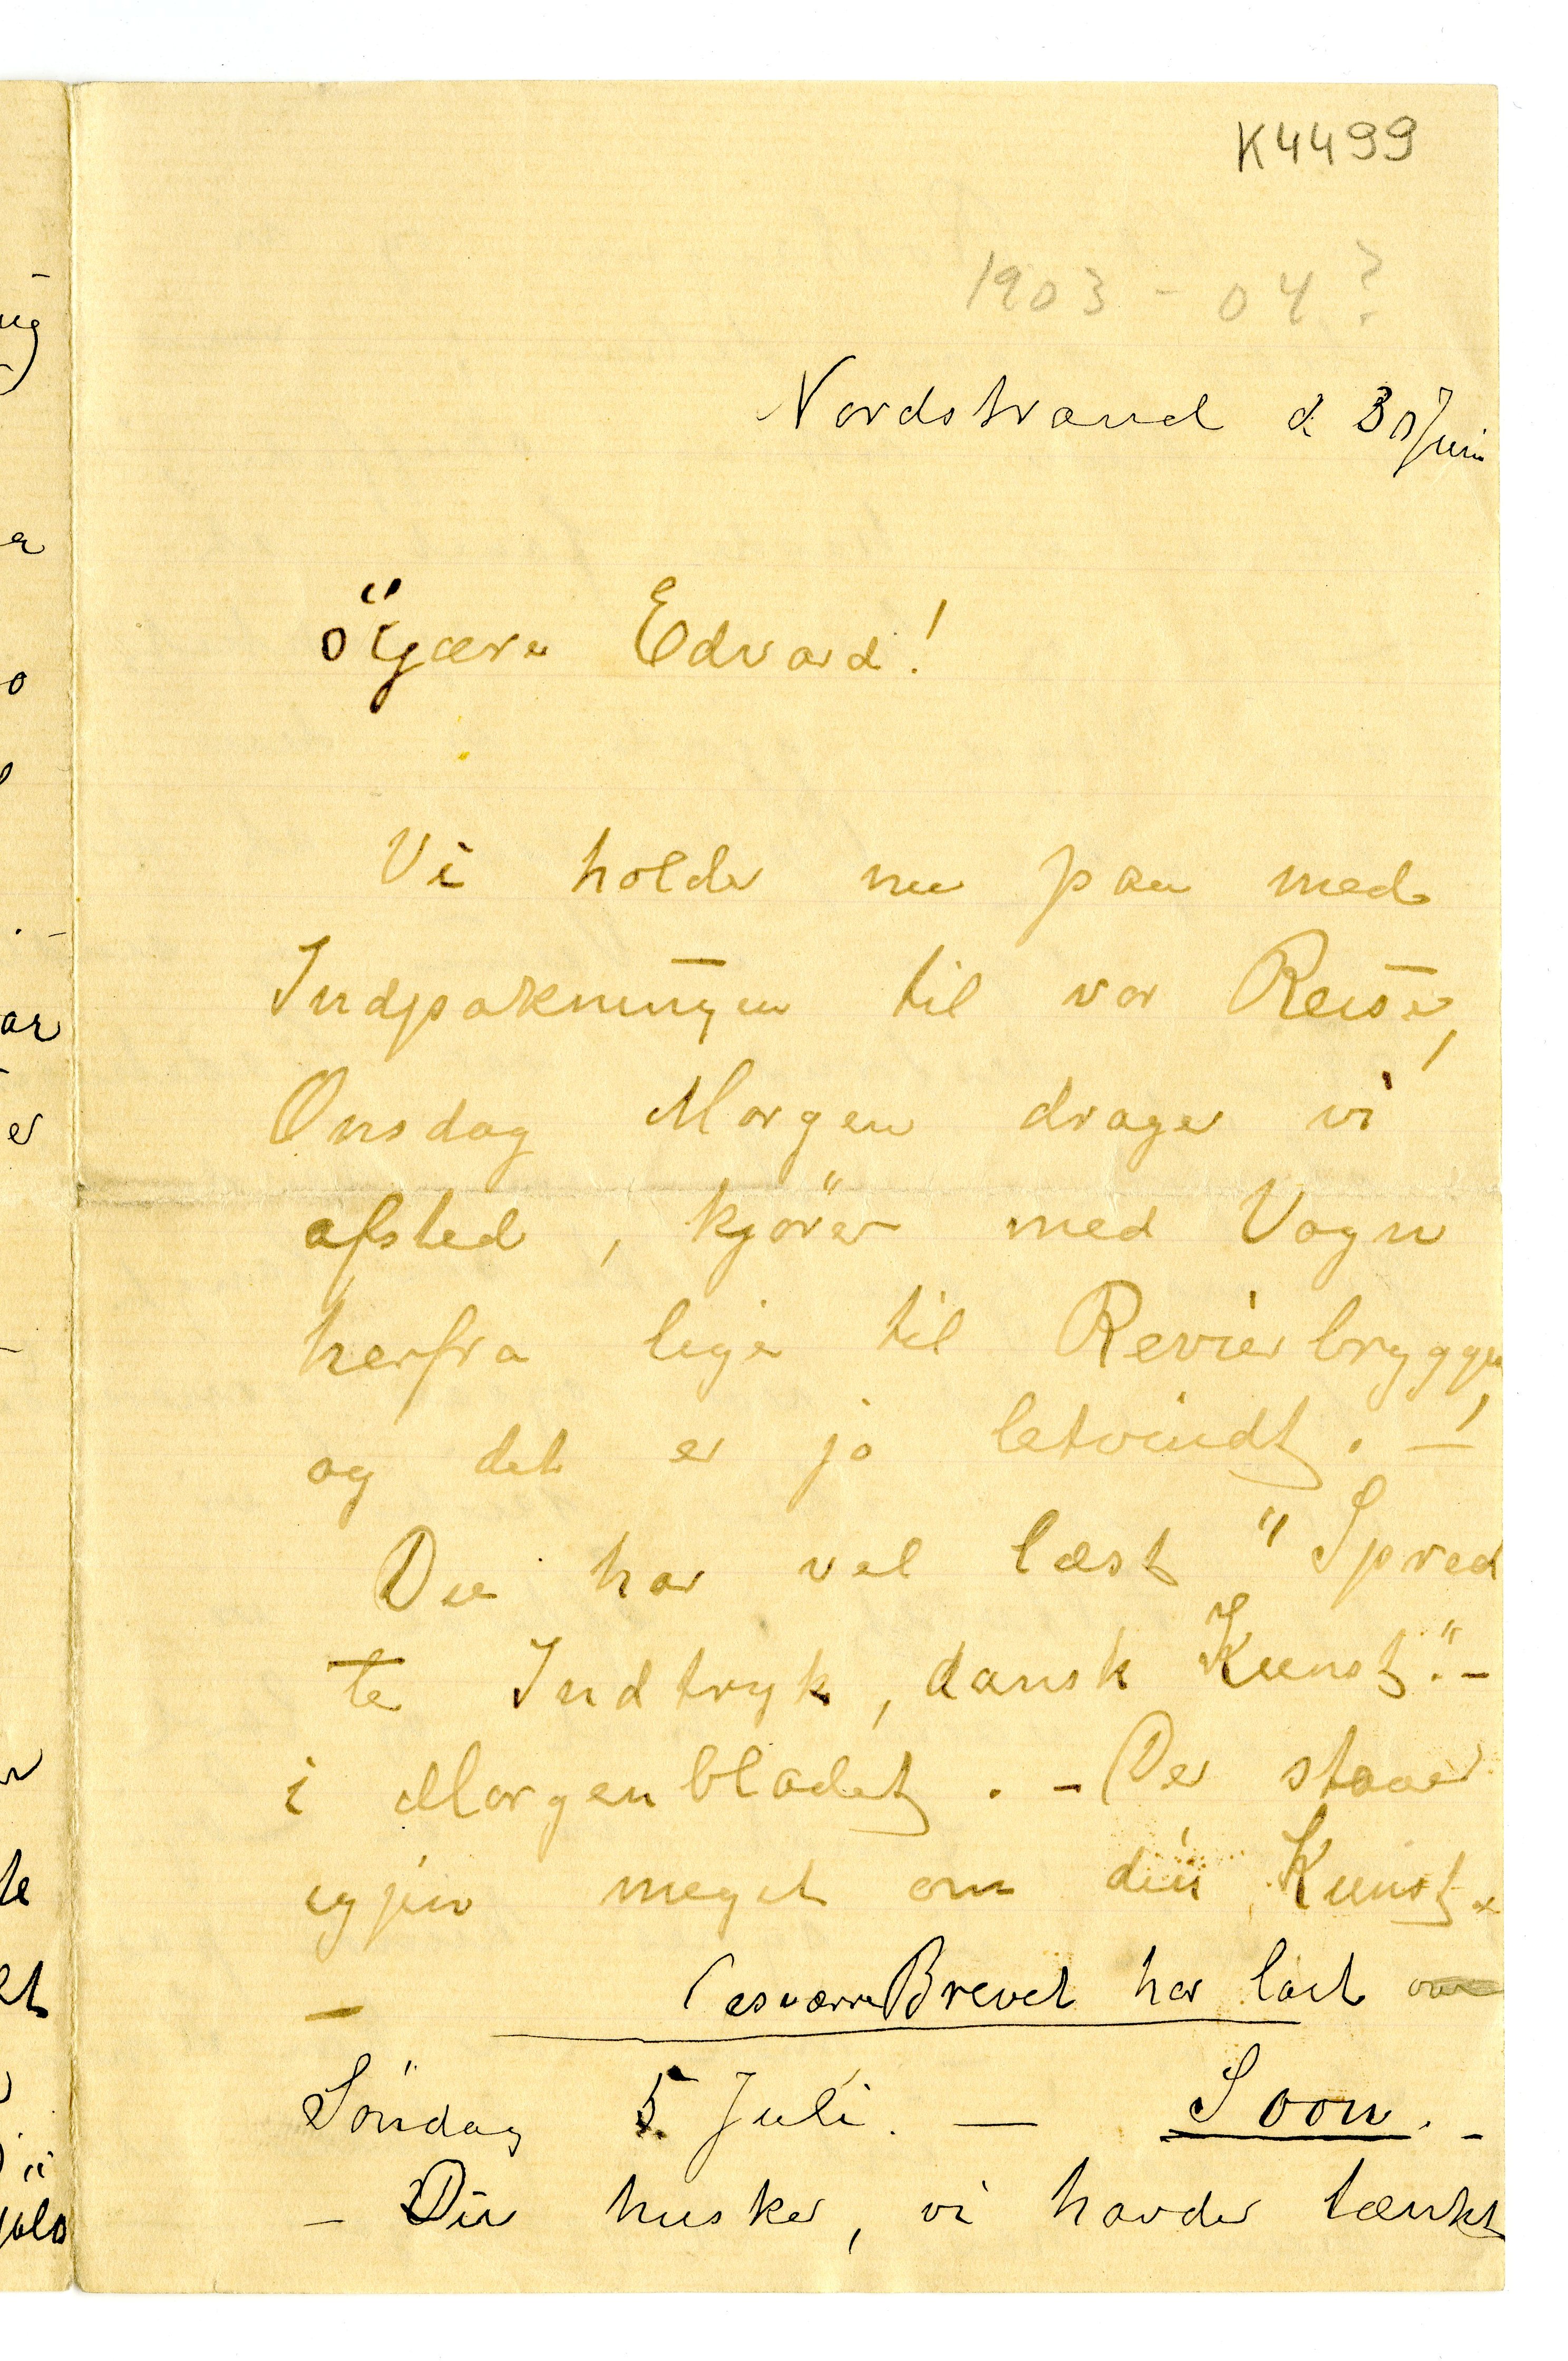 K4499
1903-04?
Nordstrand d 30 Juni
Kjære Edvard!
Vi holder nu paa med
Indpakningen til vor Reise,
Onsdag Morgen drager vi
afsted, kjører med Vogn
herfra lige til Revierbryggen,
og det er jo letvindt. –
Du har vel læst "Spred
te Indtryk, dansk Kunst". –
i Morgenbladet. – Der staaer
igjen meget om din Kunst.
– Desværre Brevet har lært
Söndag 5. Juli. — Soon. –
– Du husker, vi havde tænkt